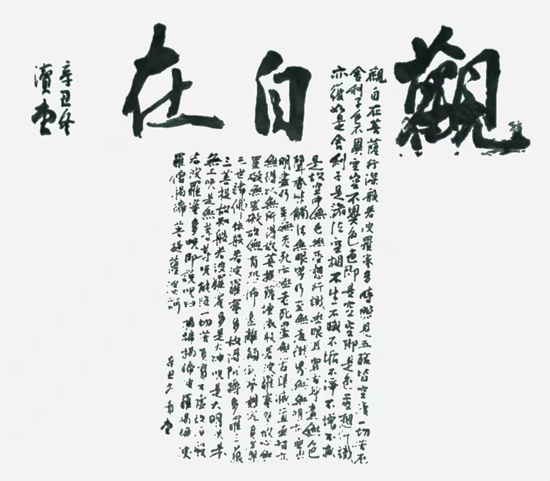 觀自在
觀自在菩薩行深般若波羅蜜多時照見五蘊皆空度一切苦厄
舍利子色不異空空不異色色即是空空即是色受想行識
亦復如是舍利子是諸法空相不生不滅不垢不淨不增不減
是故空中無色無受想行識無眼耳鼻舌身意無色
聲香味觸法無眼界乃至無意識界無無明亦無無
明盡乃至無老死亦無老死盡無苦集滅道無智亦
無得以無所得故菩提薩埵依般若波羅蜜多故心無
罣礙無罣礙故無有恐怖遠離顛倒夢想究竟涅槃
三世諸佛依般若波羅蜜多故得阿耨多羅三藐
三菩提故知般若波羅蜜多是大神咒是大明咒是
無上咒是無等等咒能除一切苦真實不虛故說般
若波羅蜜多咒即說咒曰揭諦揭諦波羅揭諦波
羅僧揭諦菩提薩婆訶
辛丑冬
辛丑冬